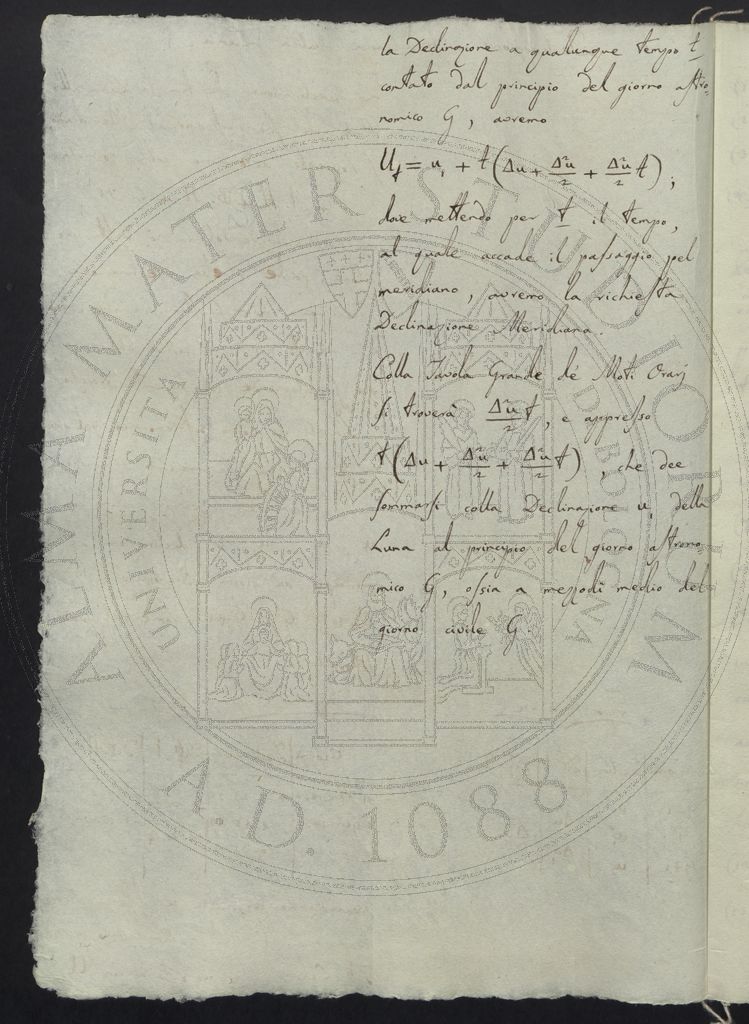 la Declinazione a qualunque tempo t
contato dal principio del giorno astro-
nomico G, avremo
U_t = u_1 + t (Δu + Δ²u/2 + Δ²u/2 t) ;
dove mettendo per t il tempo,
al quale accade il passaggio pel
meridiano, avremo la richiesta
Declinazione Meridiana.
Colla Tavola Grande de' Moti Orarj
si troverà Δ²u/2 t, e appresso
t (Δu + Δ²u/2 + Δ²u/2 t), che dee
sommarsi colla Declinazione u_1 della
Luna al principio del giorno astrono
mico G, ossia a mezzodì medio del
giorno civile G.
ALMA MATER STUDIORUM
UNIVERSITÀ DI BOLOGNA
A.D. 1088